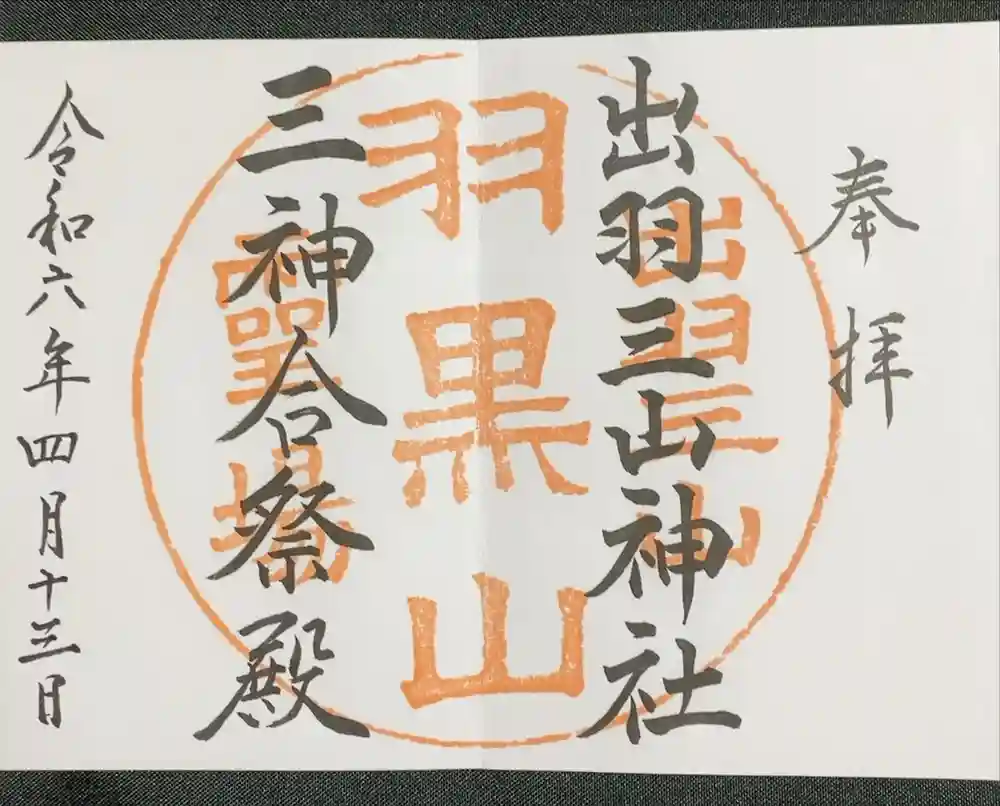 奉拝
出羽三山神社
出羽三山
羽黒山
霊場
三神合祭殿
令和六年四月十三日